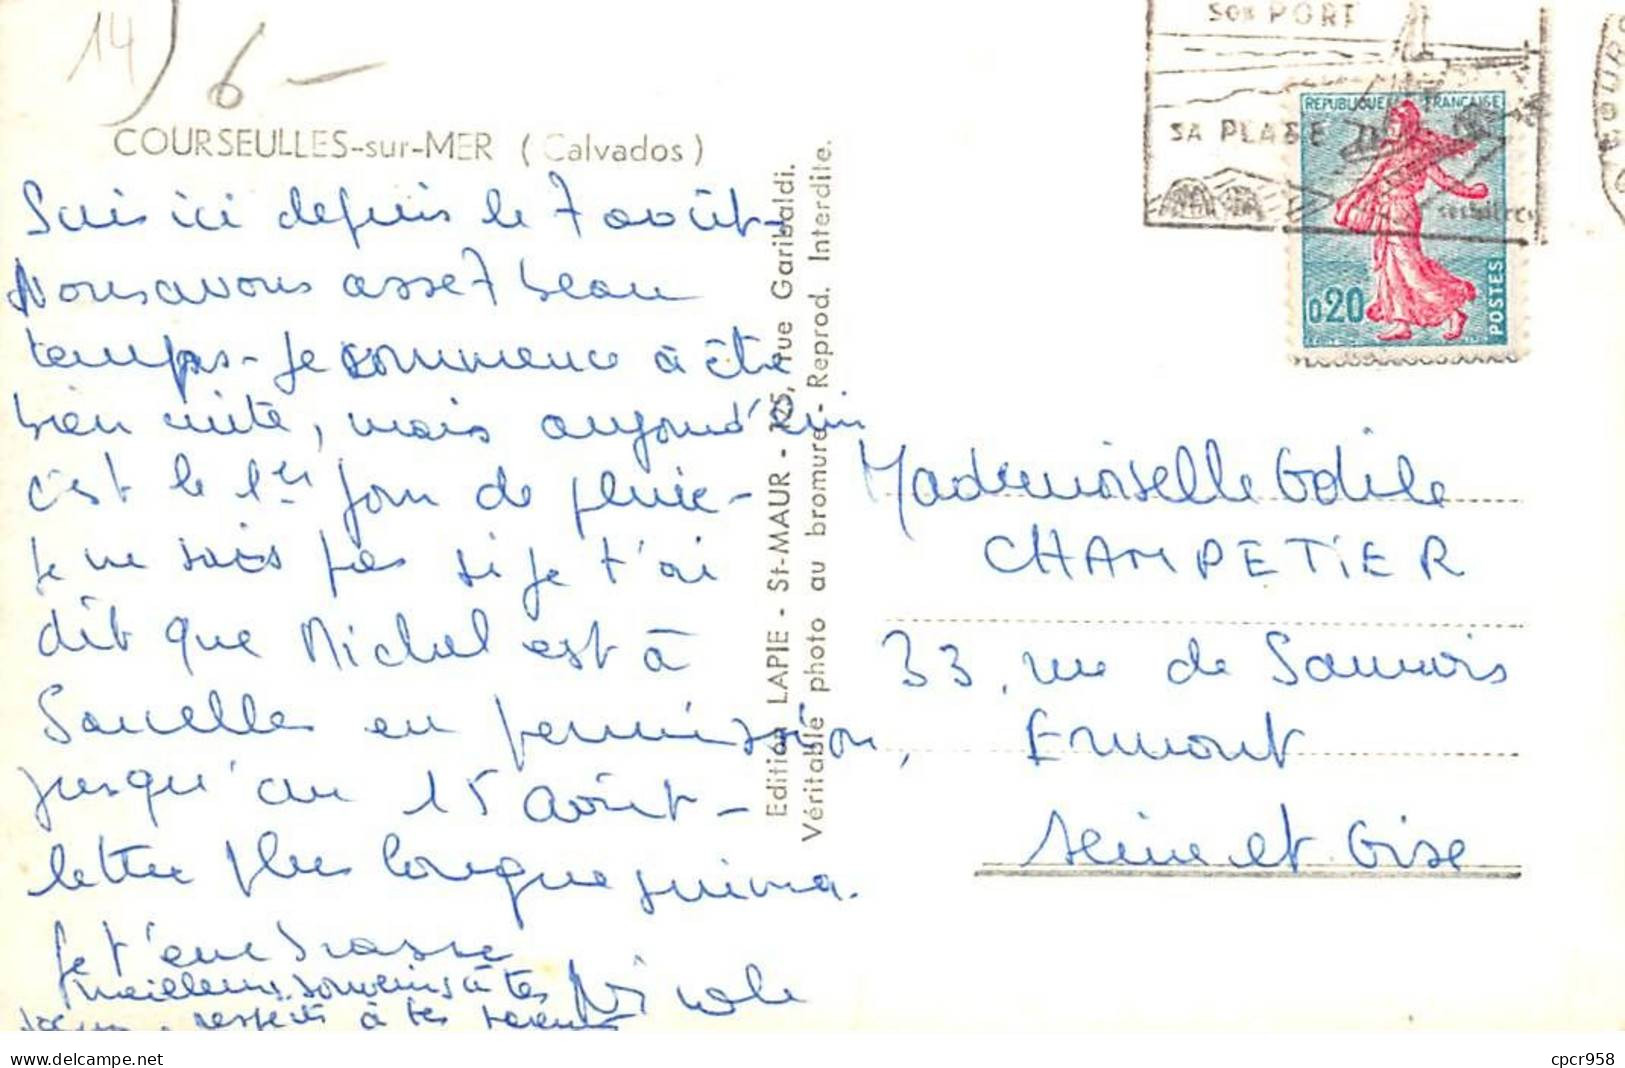 14
6 -
COURSEULLES-sur-MER (Calvados)
Suis ici depuis le 7 août-
Nous avons assez beau
temps - Je commence à être
bien cuite, mais aujourd'hui
c'est le 1er jour de pluie -
Je ne sais pas si je t'ai
dit que Michel est à
en permission,
jusqu'au 15 août -
lettre plus longue suivra.
Je t'embrasse
Nicole
meilleurs souvenirs à tes
respects à tes parents
Edition LAPIE - St-MAUR - 125, rue Garibaldi.
Véritable photo au bromure - Reprod. Interdite.
SON PORT
SA PLAGE
REPUBLIQUE FRANÇAISE
0,20
POSTES
Mademoiselle Odile
CHAMPETIER
33, rue de Sannois
Ermont
Seine et Oise
www.delcampe.net
cpcr958